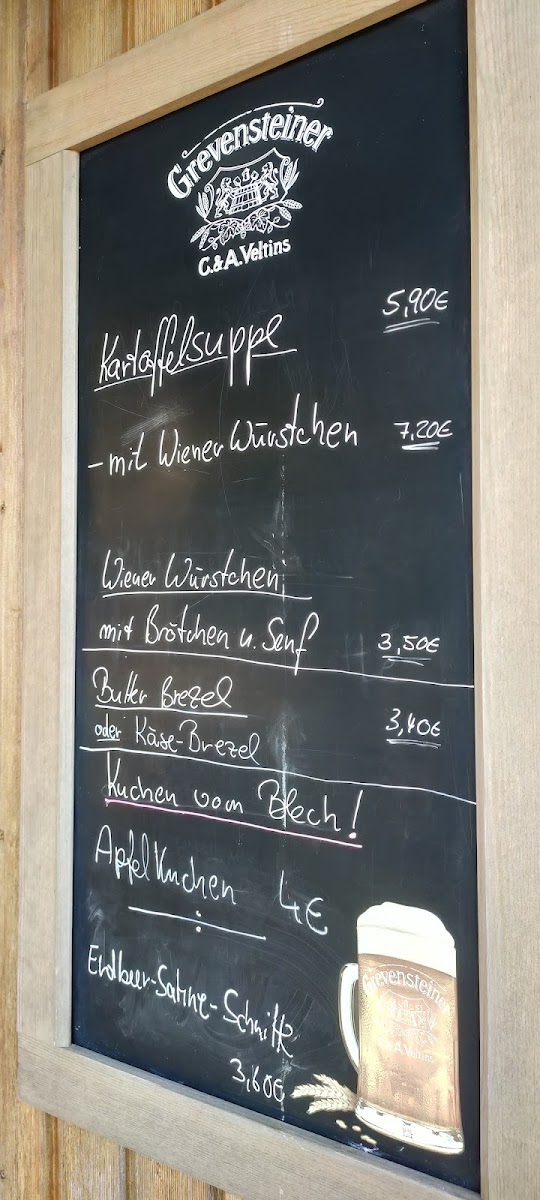 Grevensteiner
C. & A. Veltins
Kartoffelsuppe 5,90€
- mit Wiener Würstchen 7,20€
Wiener Würstchen
mit Brötchen u. Senf 3,50€
Butter Brezel
oder Käse-Brezel 3,40€
Kuchen vom Blech!
Apfelkuchen 4€
Erdbeer-Sahne-Schnitte
3,60€
Grevensteiner
C. & A. Veltins